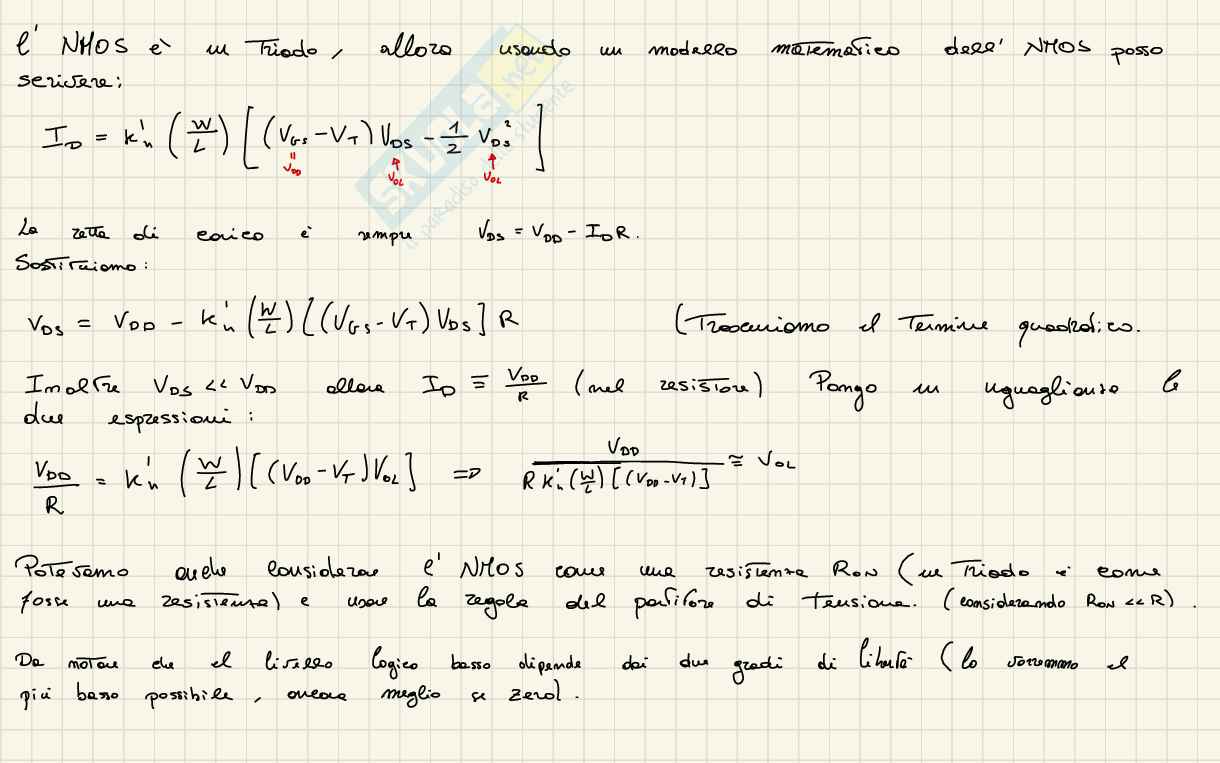 L' NMOS è in Triodo, allora usando un modello matematico dell' NMOS posso
scrivere:
I_D = k'_n (W/L) [(V_GS - V_T) V_DS - 1/2 V_DS²]
= V_DD ↑ V_OL ↑ V_OL
SKUOLA.net
il paradiso dello studente
La retta di carico è sempre V_DS = V_DD - I_D R.
Sostituiamo:
V_DS = V_DD - k'_n (W/L) [(V_GS - V_T) V_DS] R (Trascuriamo il Termine quadratico.
Inoltre V_DS << V_DD allora I_D ≡ V_DD/R (nel resistore) Pongo in uguaglianza le
due espressioni:
V_DD/R = k'_n (W/L) [(V_DD - V_T) V_OL] => V_DD / R k'_n (W/L) [(V_DD - V_T)] ≅ V_OL
Potevamo anche considerare l' NMOS come una resistenza R_ON (in Triodo è come
fosse una resistenza) e usare la regola del partitore di tensione. (considerando R_ON << R).
Da notare che il livello logico basso dipende dai due gradi di libertà (lo vorremmo il
più basso possibile, ancora meglio se zero).